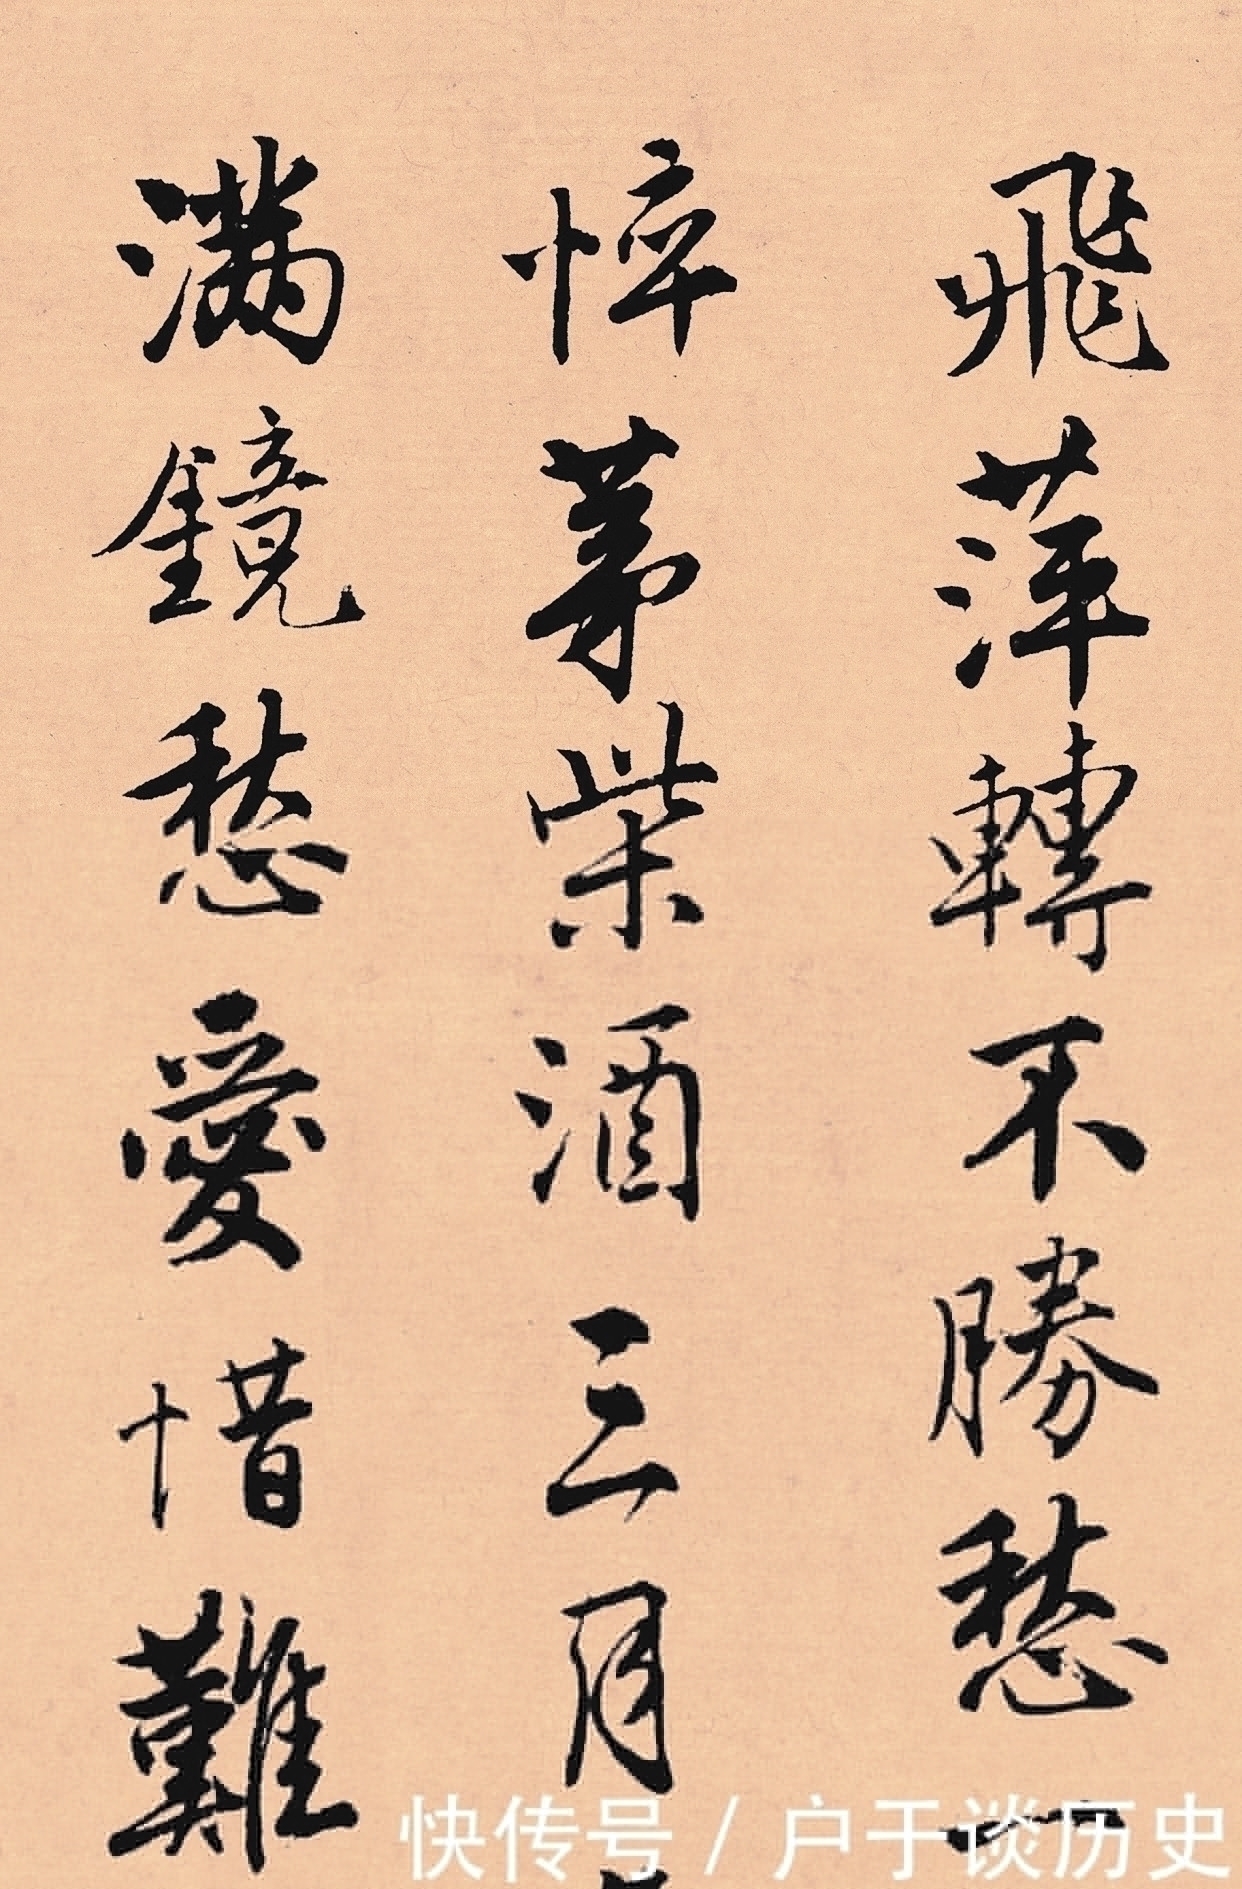 飛萍轉不勝愁一
悴茅柴酒三月
滿鏡愁愛惜難
快传号 / 户于谈历史